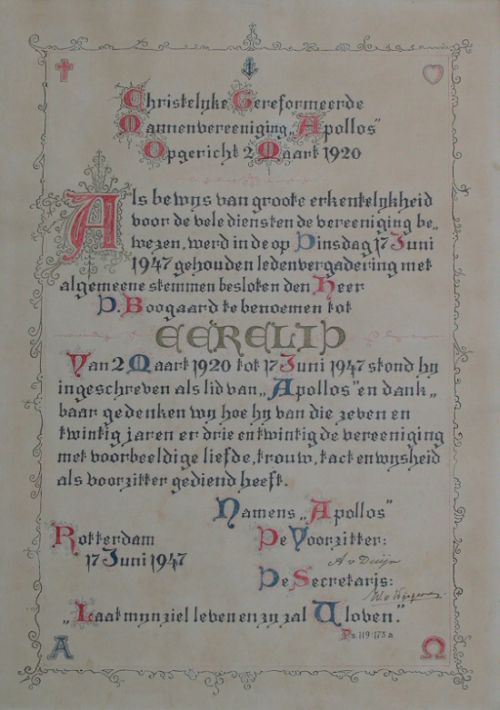 Christelyke Gereformeerde
Mannenvereeniging „Apollos”
Opgericht 2 Maart 1920
Als bewys van groote erkentelykheid
voor de vele diensten de vereeniging be„
wezen, werd in de op Dinsdag 17 Juni
1947 gehouden ledenvergadering met
algemeene stemmen besloten den Heer
D. Boogaard te benoemen tot
EERELID
Van 2 Maart 1920 tot 17 Juni 1947 stond hy
ingeschreven als lid van „Apollos” en dank„
baar gedenken wy hoe hy van die zeven en
twintig jaren er drie en twintig de vereeniging
met voorbeeldige liefde, trouw, tact en wysheid
als voorzitter gediend heeft.
Namens „Apollos”
Rotterdam
17 Juni 1947
De Voorzitter:
A v Duijn
De Secretaris:
„Laat myn ziel leven en zy zal U loven.”
Ps. 119:175a
Α
Ω